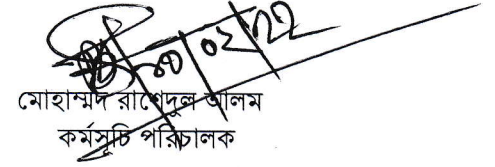 ০২/২২
মোহাম্মদ রাশেদুল আলম
কর্মসূচি পরিচালক